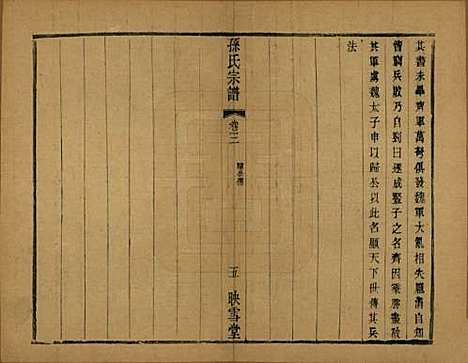 其書未畢齊軍萬弩俱發魏軍大亂相失龐涓自知
智窮兵敗乃自剄曰遂成豎子之名齊因乘勝盡破
其軍虜魏太子申以歸公以此名顯天下世傳其兵
法
孫氏宗譜
卷三
五
映雪堂